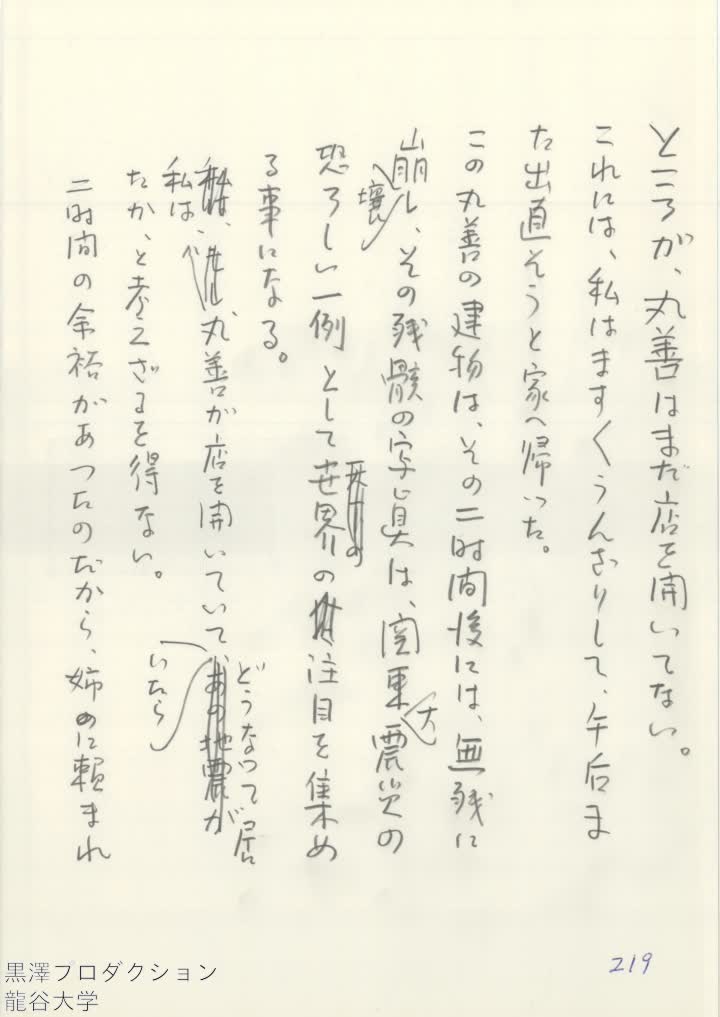 ところが、丸善はまだ店を開いてない。
これには、私はますくうんざりして、午后ま
た出直そうと家へ帰った。
この丸善の建物は、その二時間後には、無残に
崩壊し、その残骸の写真は、関東大震災の
恐ろしい一例として世界の注目を集め
る事になる。
私は、丸善が店を開いていて、いたら
どうなって居
たか、と考えざるを得ない。
二时間の余裕があったのだから、姉に頼まれ
219
黒澤プロダクション
龍谷大学